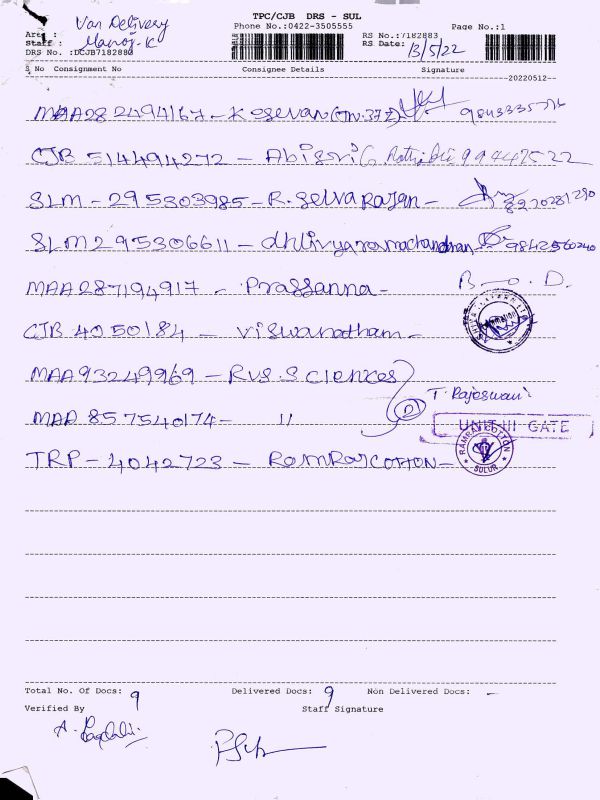 TPC/CJB DRS - SUL
Van Delivery
Phone No.:0422-3505555
Page No.:1
Area :
Staff : Manoj.K
RS No.:7182883
RS Date: 13/5/22
DRS No. :DCJB7182880
S No Consignment No Consignee Details Signature
20220512--
MAA282494167 - Kesevan
CJB 514494272 - Abisri 99447522
SLM - 295303985 - R. Selva Rajan - 8220281290
SLM 295306611 - dhivyaramachandran 9842560240
MAA287194917 - Prassanna - B-O.D.
CJB 4050184 - Viswanatham -
MAA93249969 - Rvs. Sciences
T. Rajeswari
MAA 857540174 - 11
UNIT-III GATE
TRP - 4042723 - Ramraj COTTON -
RAMRAJ COTTON
SULUR
Total No. Of Docs: 9 Delivered Docs: 9 Non Delivered Docs: -
Verified By Staff Signature